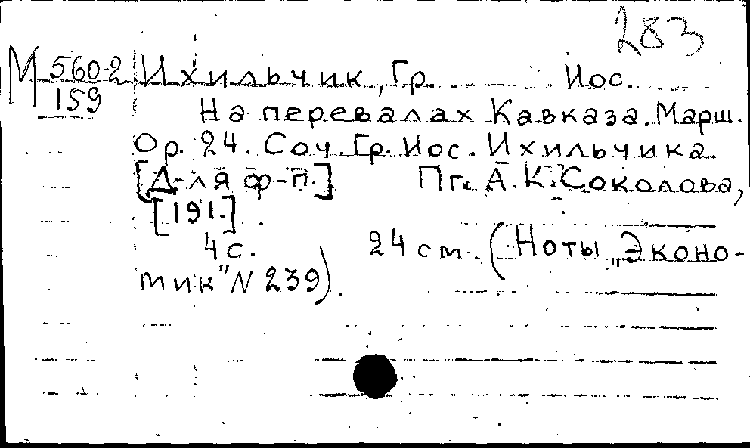 283
М 560-2
159
Ихильчик, Гр. Иос.
На перевалах Кавказа. Марш.
Ор. 24. Соч. Гр. Иос. Ихильчика.
[Д-ля ф-п.] Пг. А. К. Соколова,
[191.]
4 с. 24 см. (Ноты „Эконо-
мик" N 239).